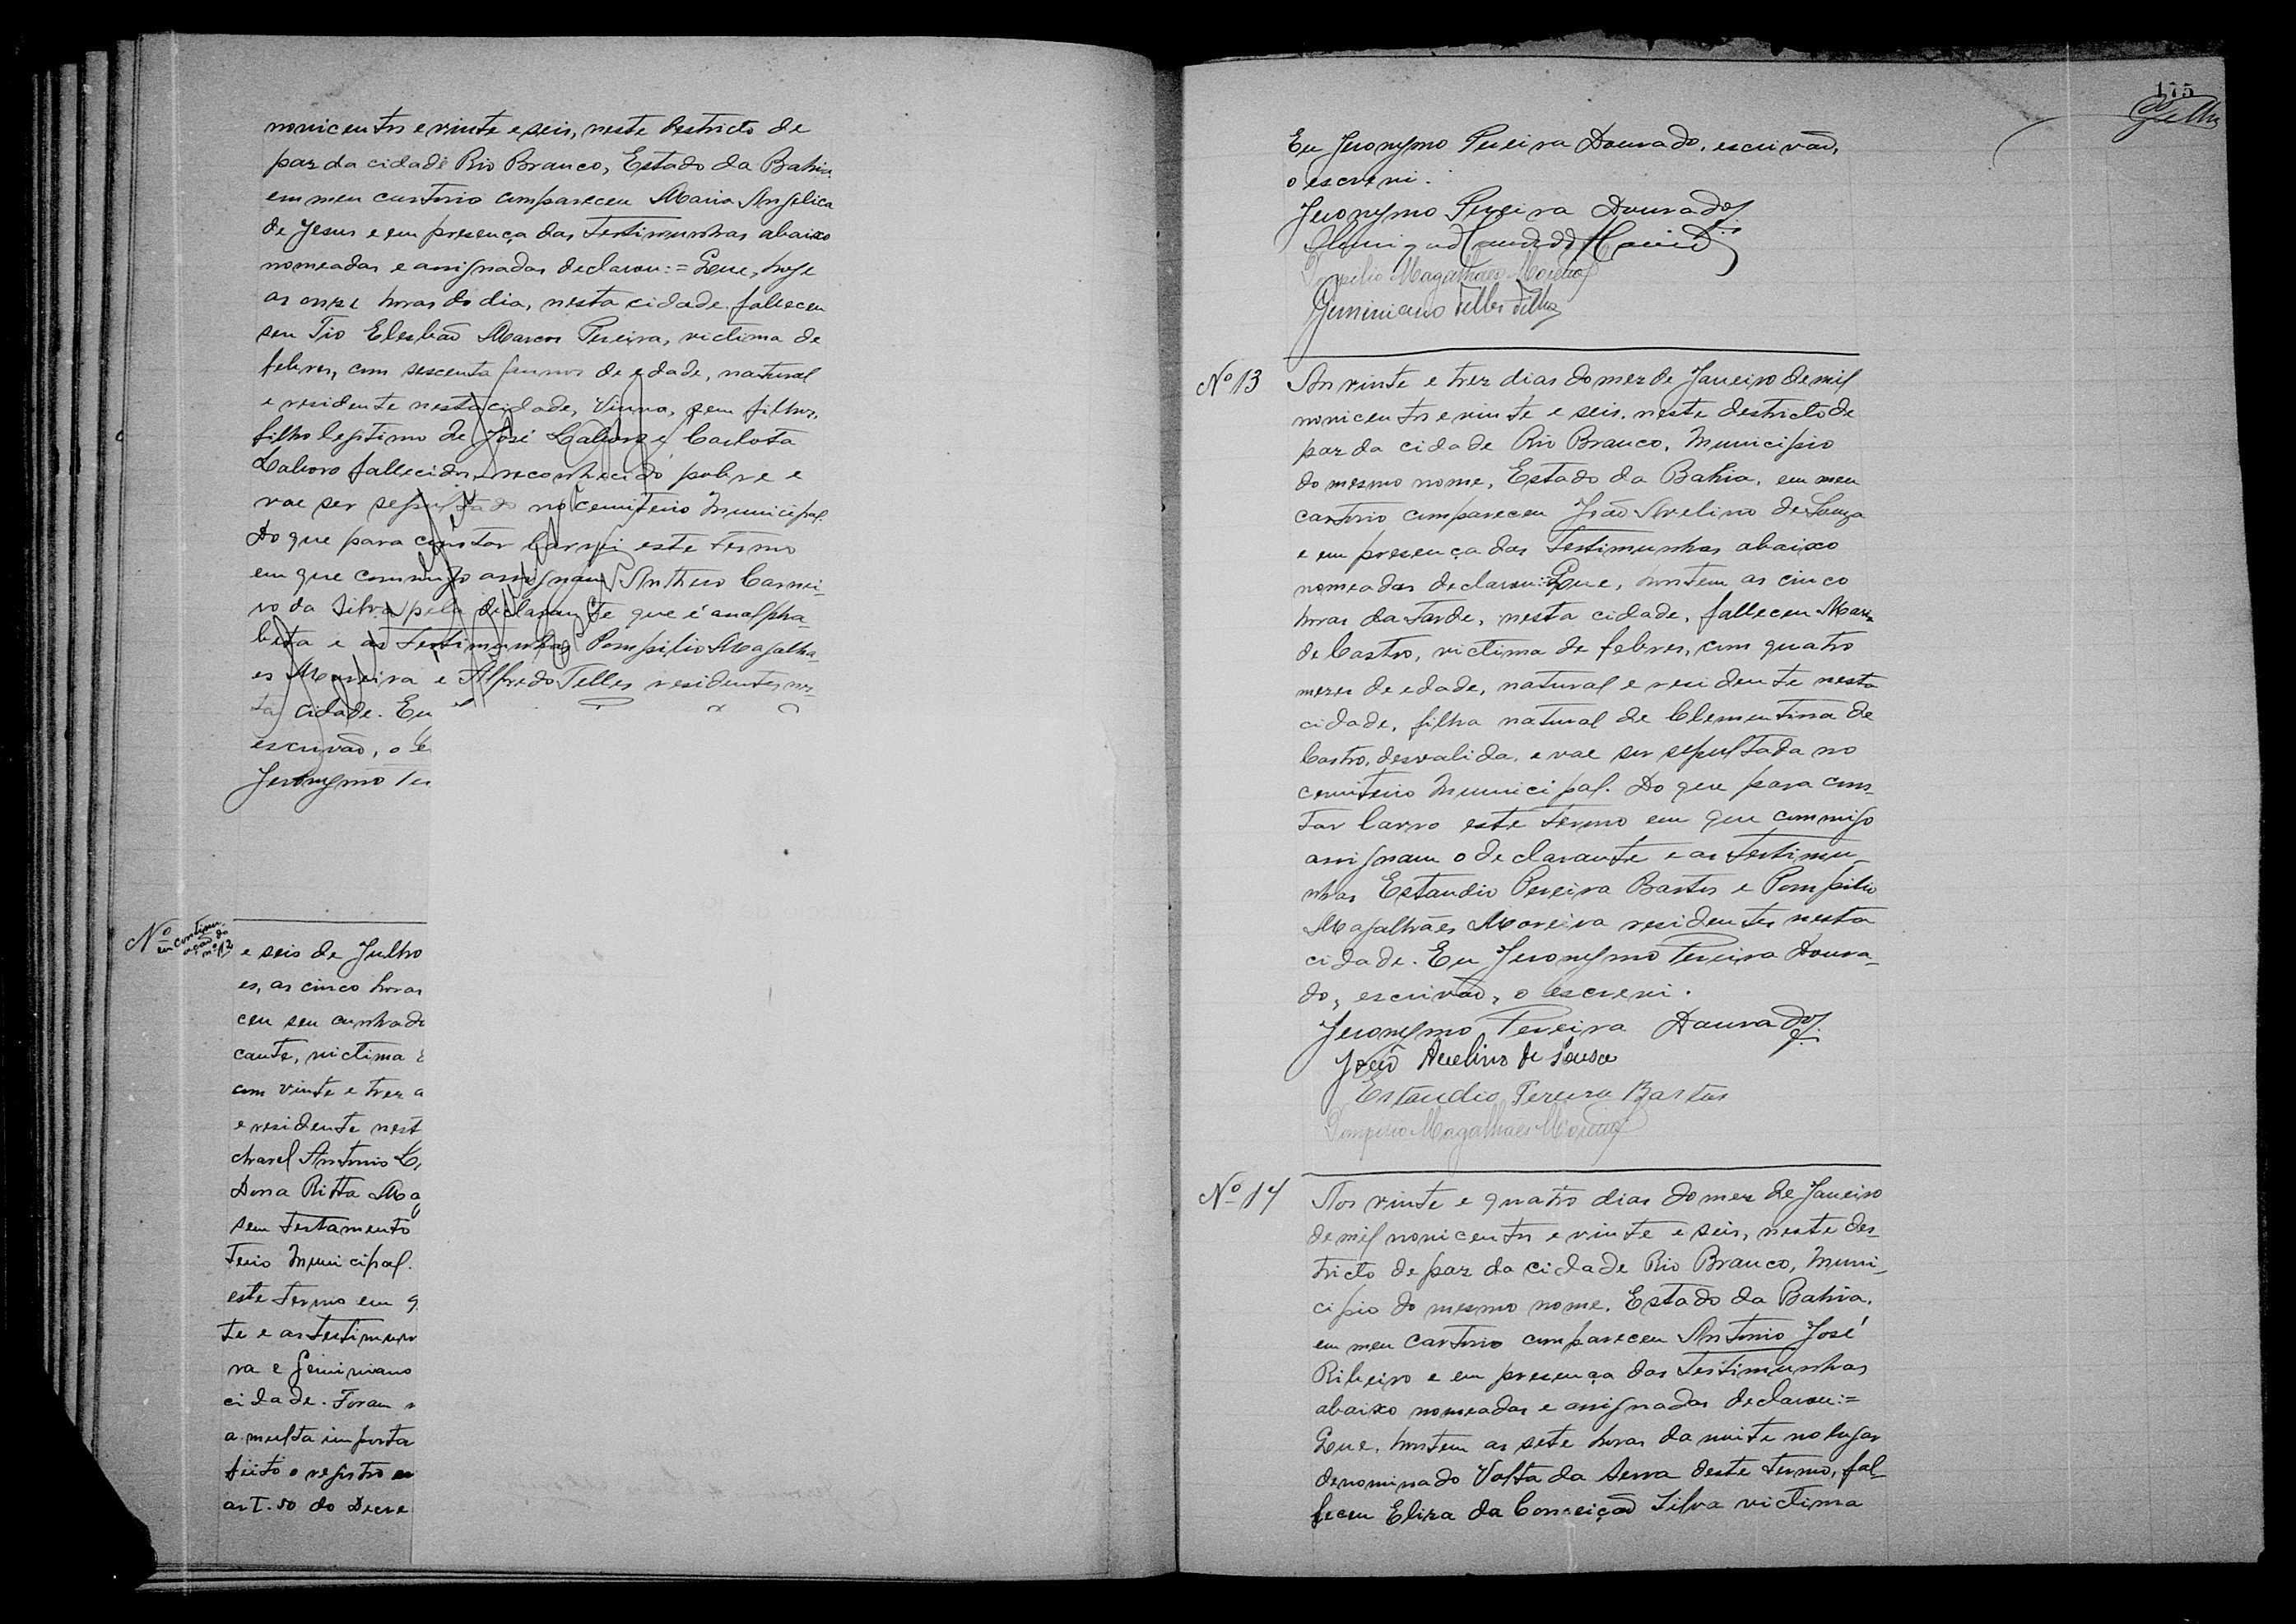 novicentos e vinte e seis, neste destricto de
paz da cidade Rio Branco, Estado da Bahia
em meu cartorio compareceu Maria Angelica
de Jesus e em presença das testimunhas abaixo
nomeadas e assignadas declarou:= Que, hoje
as onze horas do dia, nesta cidade falleceu
seu Tio Elesbaõ Marcos Pereira, victima de
febres, com sescenta annos de edade, natural
e residente nesta cidade, Viuvo, sem filhos,
filho legitimo de José e Carlota
fallecidos, reconhecido pobre e
vae ser sepultado no cemiterio Municipal.
Do que para constar lavrei este termo
em que commigo assignam Anthero Carnei-
ro da Silva pela declarante que é analpha-
beta e as testimunhas Pompilio Magalha-
es Moreira e Alfredo Telles residentes nes-
ta cidade. Eu
escrivaõ, o e
Jeronymo Per
Nº em continu-
ação do
nº 12
e seis de Julho
es, as cinco horas
ceu seu cunhado
cante, victima
com vinte e trez a
e residente nest
charel Antonio
Dona Ritta Mag
sem testamento
terio Municipal.
este termo em q
te e as testimun
ra e Geminiano
cidade. Foram
a multa importa
feito o registro
art. 50 do Decre
175
Eu Jeronymo Pereira Dourado, escrivaõ,
o escrevi.
Jeronymo Pereira Dourado
Pompilio Magalhães Moreira
Geminiano Telles Filho
Nº 13
Aos vinte e trez dias do mez de Janeiro de mil
novicentos e vinte e seis, neste destricto de
paz da cidade Rio Branco, Municipio
do mesmo nome, Estado da Bahia, em meu
cartorio compareceu João Avelino de Souza
e em presença das testimunhas abaixo
nomeadas declarou:= Que, hontem as cinco
horas da tarde, nesta cidade, falleceu Maria
de Castro, victima de febres, com quatro
mezes de edade, natural e residente nesta
cidade, filha natural de Clementina de
Castro, desvalida, e vae ser sepultada no
cemiterio Municipal. Do que para cons-
tar lavro este termo em que commigo
assignam o declarante e as testimu-
nhas Estaudio Pereira Bastos e Pompilio
Magalhães Moreira residentes nesta
cidade. Eu Jeronymo Pereira Doura-
do, escrivaõ, o escrevi.
Jeronymo Pereira Dourado
João Avelino de Sousa
Estaudio Pereira Bastos
Pompilio Magalhães Moreira
Nº 14
Aos vinte e quatro dias do mez de Janeiro
de mil novicentos e vinte e seis, neste des-
tricto de paz da cidade Rio Branco, Muni-
cipio do mesmo nome, Estado da Bahia,
em meu cartorio compareceu Antonio José
Ribeiro e em presença das testimunhas
abaixo nomeadas e assignadas declarou:=
Que, hontem as sete horas da noite no lugar
denominado Volta da Serra deste termo, fal-
leceu Eliza da Conceição Silva victima